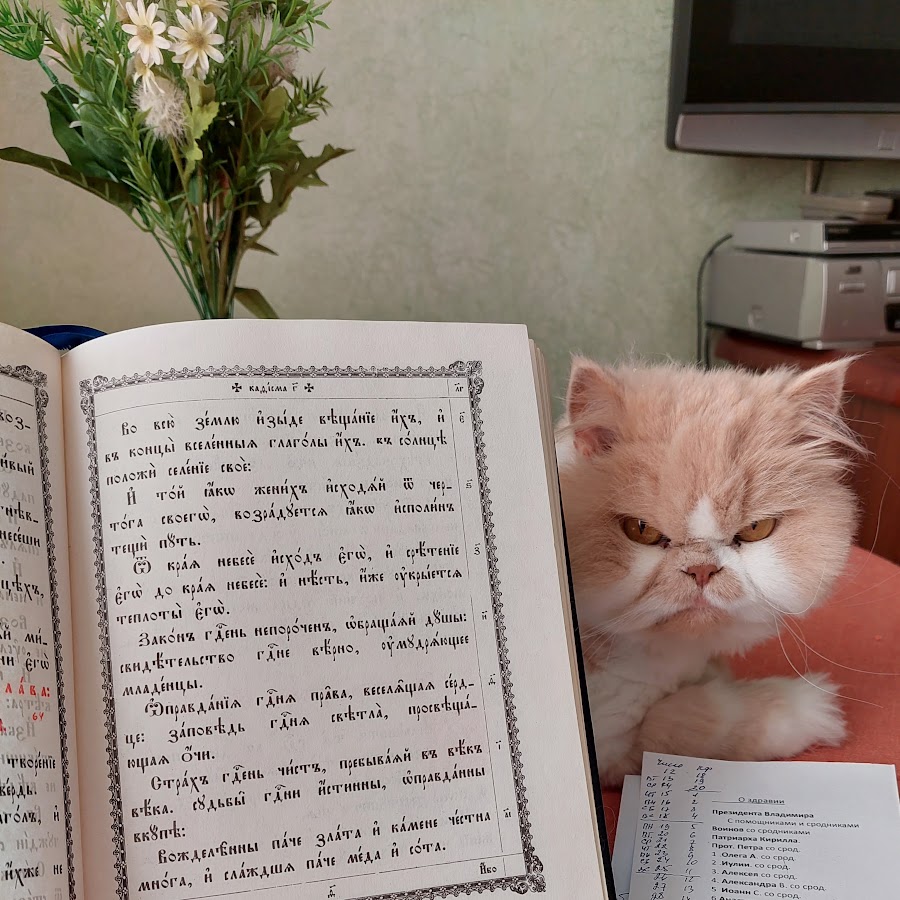 воз-
гнѣв-
лава:
64
творе́нїе
✠ каѳі́сма г҃ ✠
л҃г
Во всю̀ зе́млю и҆зы́де вѣща́нїе и҆́хъ, и҆
є҃
въ концы̀ вселе́нныѧ глаго́лы и҆́хъ. въ со́лнцѣ
положѝ селе́нїе своѐ:
И҆ то́й ꙗ҆́кѡ жени́хъ и҆сходѧ́й ѿ чер-
ѕ҃
то́га своегѡ̀, возра́дꙋетсѧ ꙗ҆́кѡ и҆споли́нъ
тещѝ пꙋ́ть.
Ѿ кра́ѧ небесѐ и҆схо́дъ є҆гѡ̀, и҆ срѣ́тенїе
з҃
є҆гѡ̀ до кра́ѧ небесѐ: и҆ нѣ́сть, и҆́же ᲂу҆кры́етсѧ
теплоты̀ є҆гѡ̀.
Зако́нъ гдⷭ҇ень непоро́ченъ, ѡ҆браща́ѧй дꙋ́шы:
и҃
свидѣ́тельство гдⷭ҇не вѣ́рно, ᲂу҆мꙋдрѧ́ющее
младе́нцы.
Ѡ҆правда̑нїѧ гдⷭ҇нѧ пра̑ва, веселѧ̑щаѧ се́рд-
ѳ҃
це: за́повѣдь гдⷭ҇нѧ свѣтла̀, просвѣща́-
ющаѧ ѻ҆́чи.
Стра́хъ гдⷭ҇ень чи́стъ, пребыва́ѧй въ вѣ́къ
і҃
вѣ́ка. сꙋдьбы̑ гдⷭ҇ни и҆́стинны, ѡ҆правда̑нны
вкꙋ́пѣ:
Вожделѣ̑нны па́че зла́та и҆ ка́мене че́стна
а҃і
мно́га, и҆ сла́ждшѧ па́че ме́да и҆ со́та.
И҆́бо
О здравии
Президента Владимира
С помощниками и сродниками
Воинов со сродниками
Патриарха Кирилла.
Прот. Петра со срод.
1 Олега А. со срод.
2 Иулии. со срод.
3. Алексея со срод.
4. Александра В. со срод.
5 Иоанн С. со срод.
Число
12 18
ПТ 13 19
20
ПН 16 2
СБ 17 3
ВС 18 4
ПН 19 5
20 6
21 7
22 8
23 9
24 10
25 11
26 12
27 13
28 14